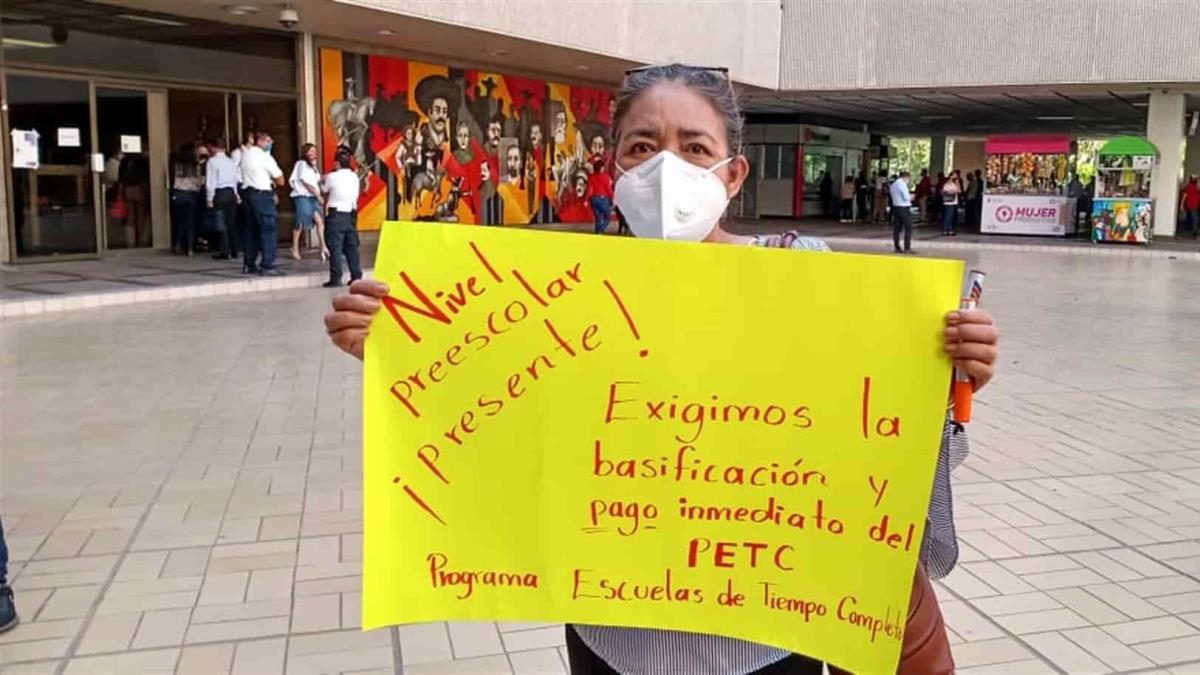 Nivel
preescolar
¡presente!
Exigimos la
basificación y
pago inmediato del
PETC
Programa Escuelas de Tiempo Completo
MUJER